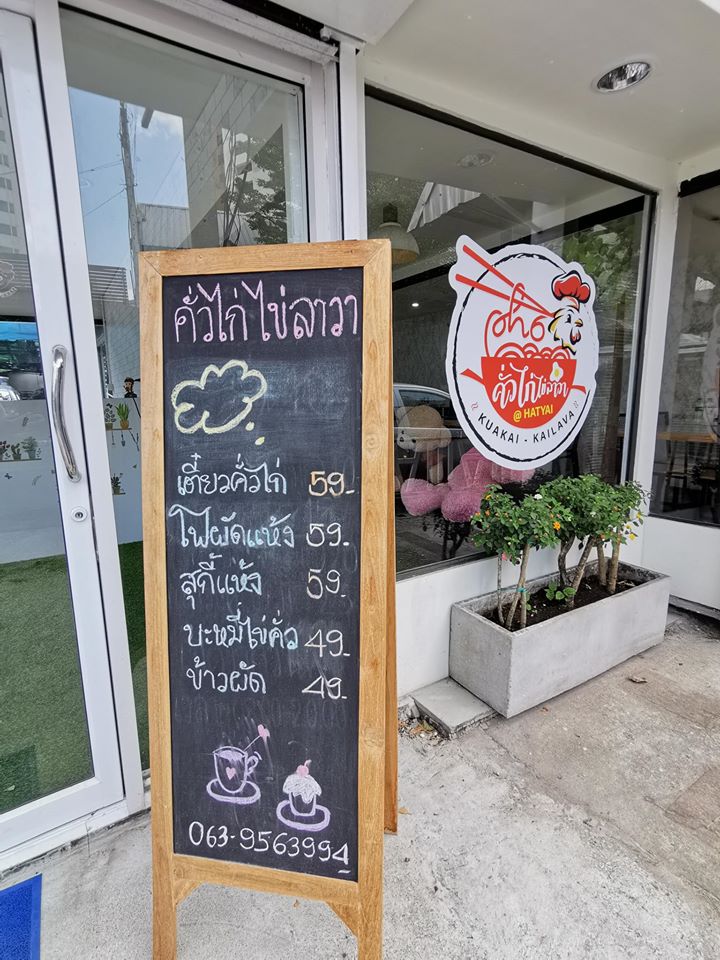 คั่วไก่ไข่ลาวา
เตี๋ยวคั่วไก่ 59.-
โฟผัดแห้ง 59.
สุกี้แห้ง 59.
บะหมี่ไข่คั่ว 49.-
ข้าวผัด 49.
063-9563994
คั่วไก่ไข่ลาวา
@ HATYAI
KUAKAI - KAILAVA